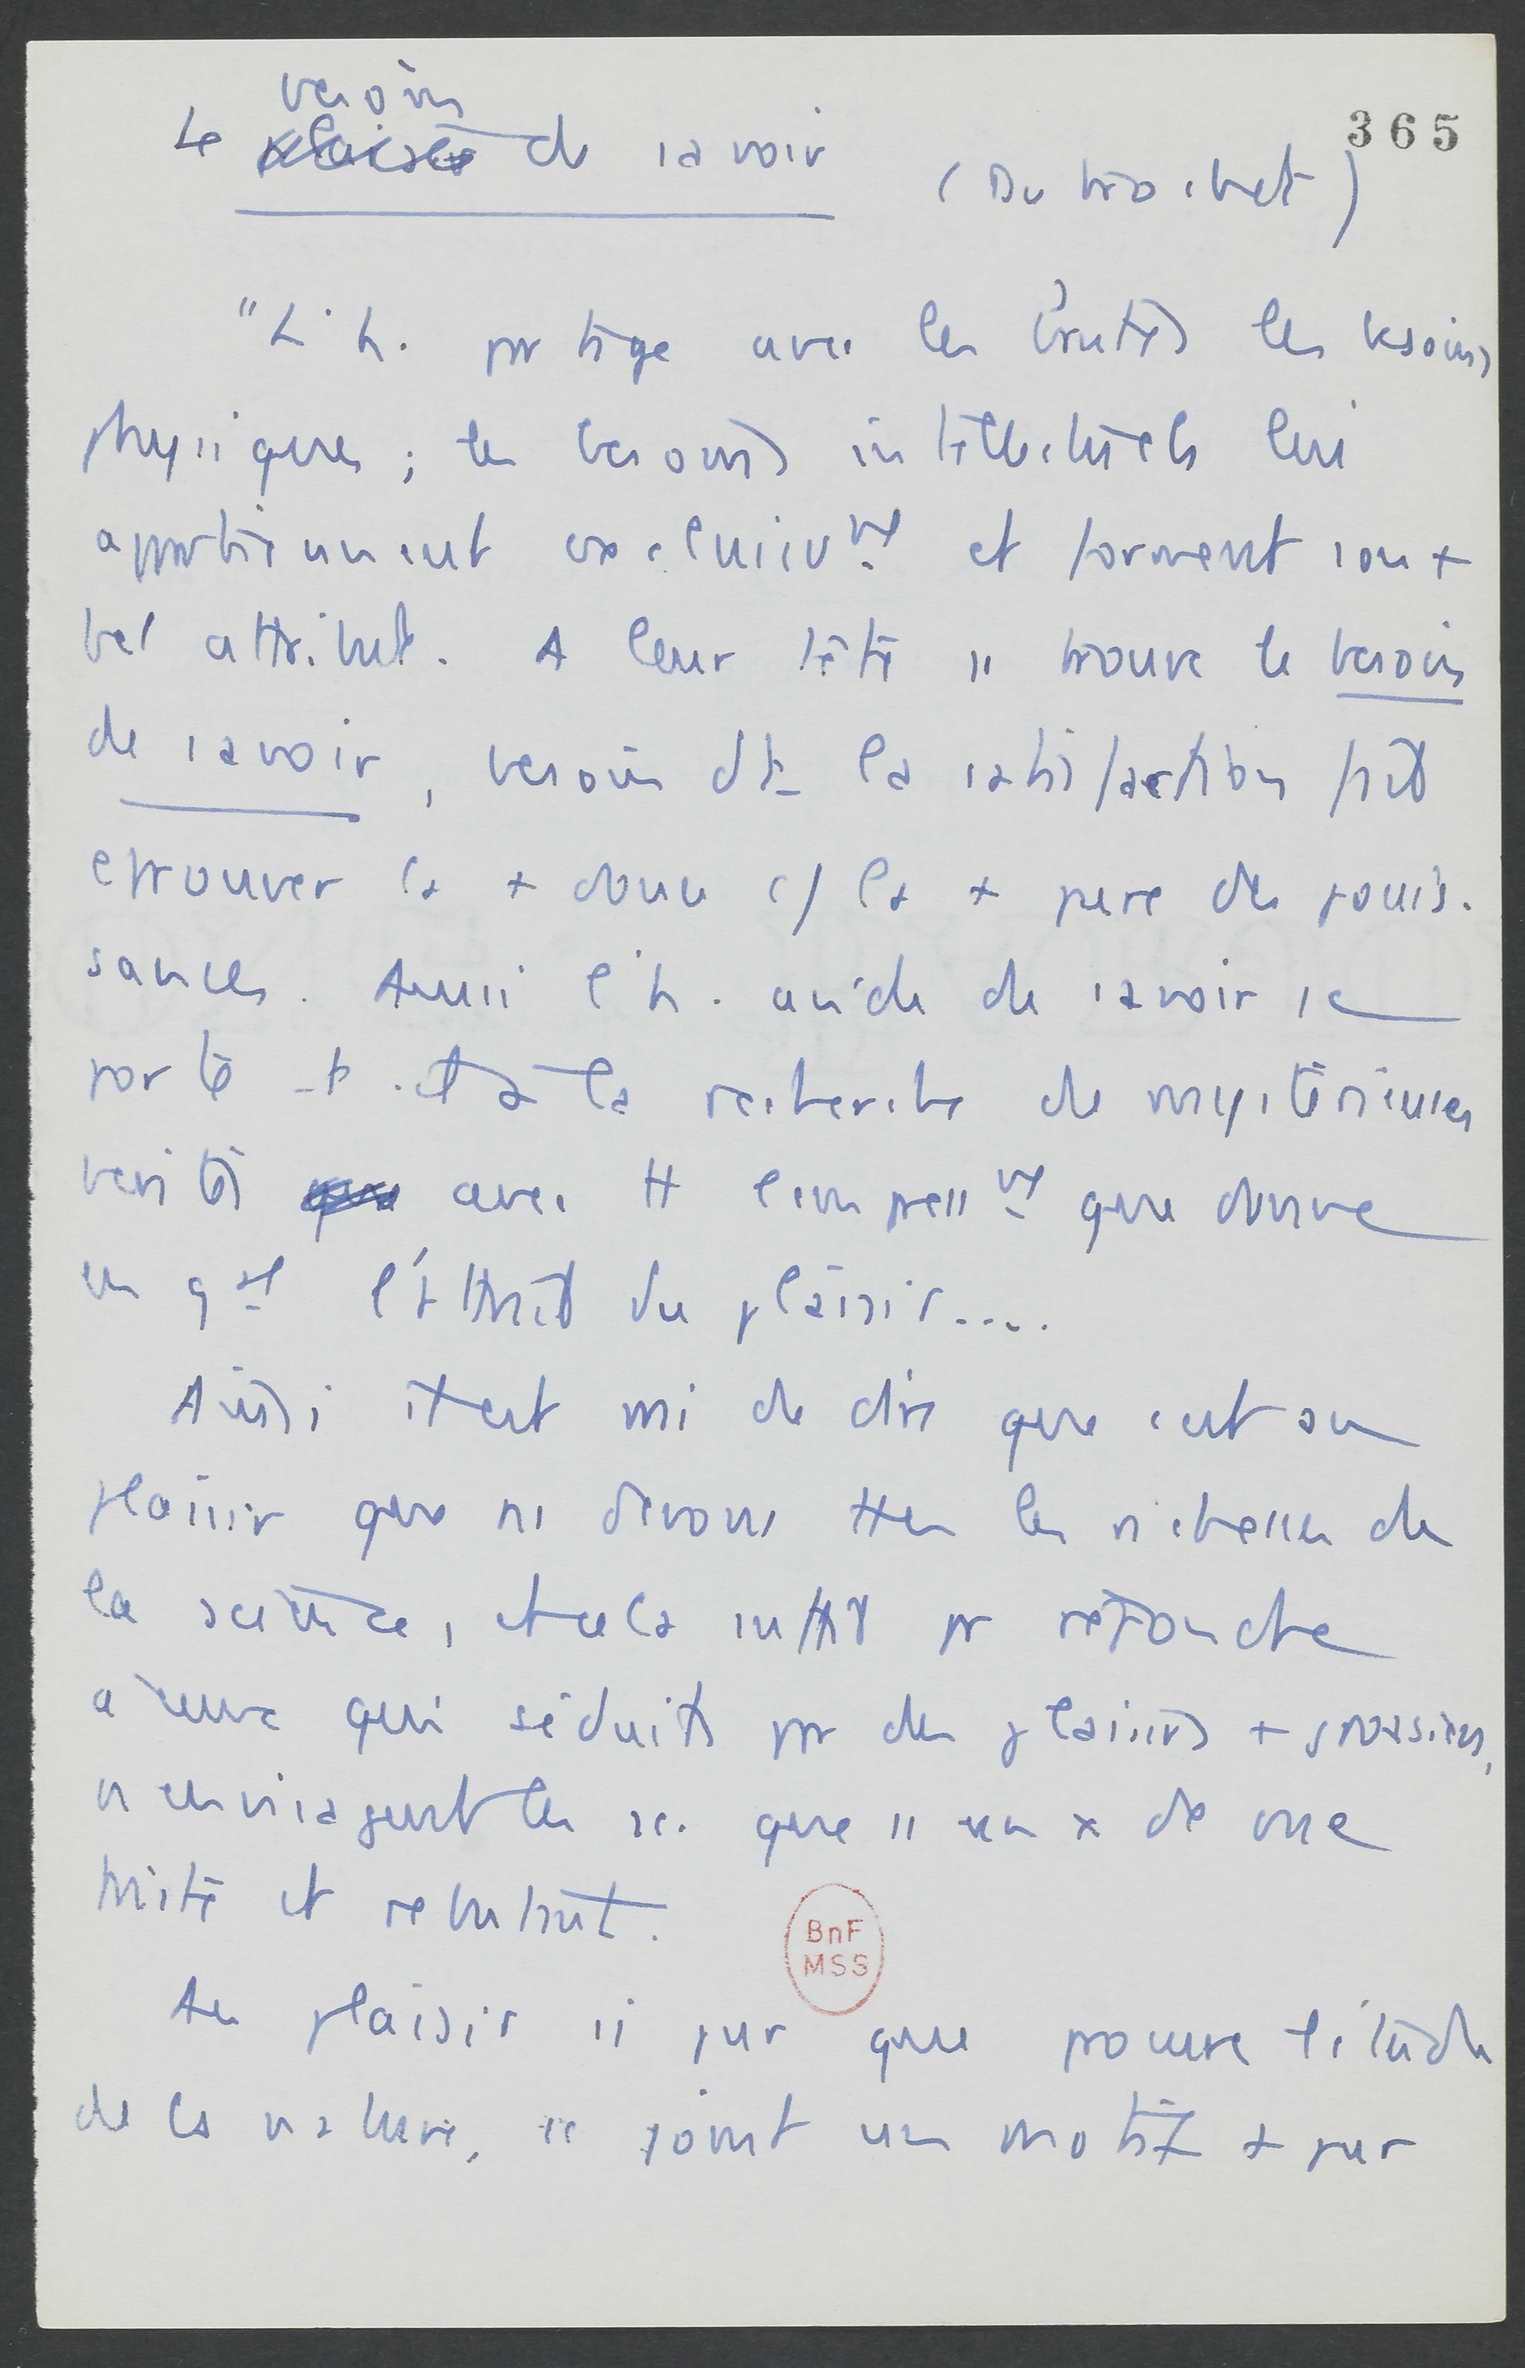 besoin
Le plaisir de savoir
365
(Dutrochet)
"L'h. partage avec les brutes les besoins
physiques ; les besoins intellectuels lui
appartiennent exclusivmt et forment son +
bel attribut. A leur tête se trouve le besoin
de savoir, besoin dt la satisfaction fait
eprouver la + douce et la + pure des jouis-
sances. Aussi l'h. avide de savoir se
porte à la recherche de mysterieuses
verités que avec tt l'empressmt que donne
en gal l'attrait du plaisir....
Ainsi il est vrai de dire que c'est au
plaisir que ns devons ttes les richesses de
la science, et cela suffit pr repondre
a ceux qui séduits par des plaisirs + grossiers,
n'envisagent les sc. que ss un x de vue
triste et rebutant.
Au plaisir si pur que procure l'étude
de la nature, se joint un motif + pur
BnF
MSS